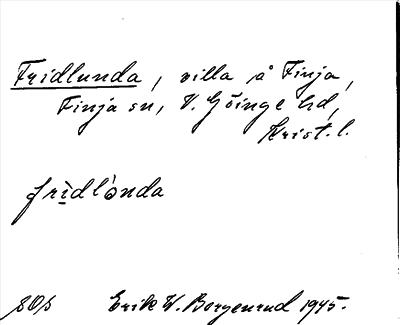 Fridlunda, villa å Finja,
Finja sn, V. Göinge hd,
Krist. l.
frìdlònda
Erik W. Borgenrud 1945.